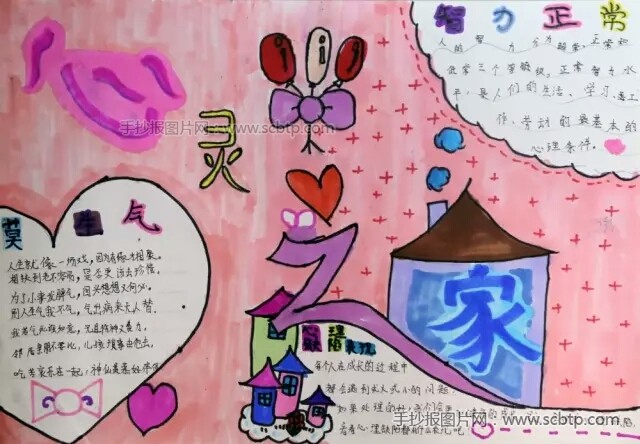 智力正常
人的智力分为超常、正常和
低常三个等级,正常智力水
平,是人们的生活、学习、工
作、劳动的最基本的
心理条件.
手抄报图片网:www.scbtp.com
心灵之家
莫生气
人生就像一场戏,因为有缘才相聚。
相扶到老不容易,是否更该去珍惜。
为了小事发脾气,回头想想又何必。
别人生气我不气,气出病来无人替。
我若气死谁如意,况且伤神又费力。
邻居亲朋不要比,儿孙琐事由他去。
吃苦享乐在一起,神仙羡慕好伴侣。
心理
缺陷
每个人在成长的过程中
都会遇到大大小小的问题,
如果处理的
看看心理缺陷都
www.scbtp.com